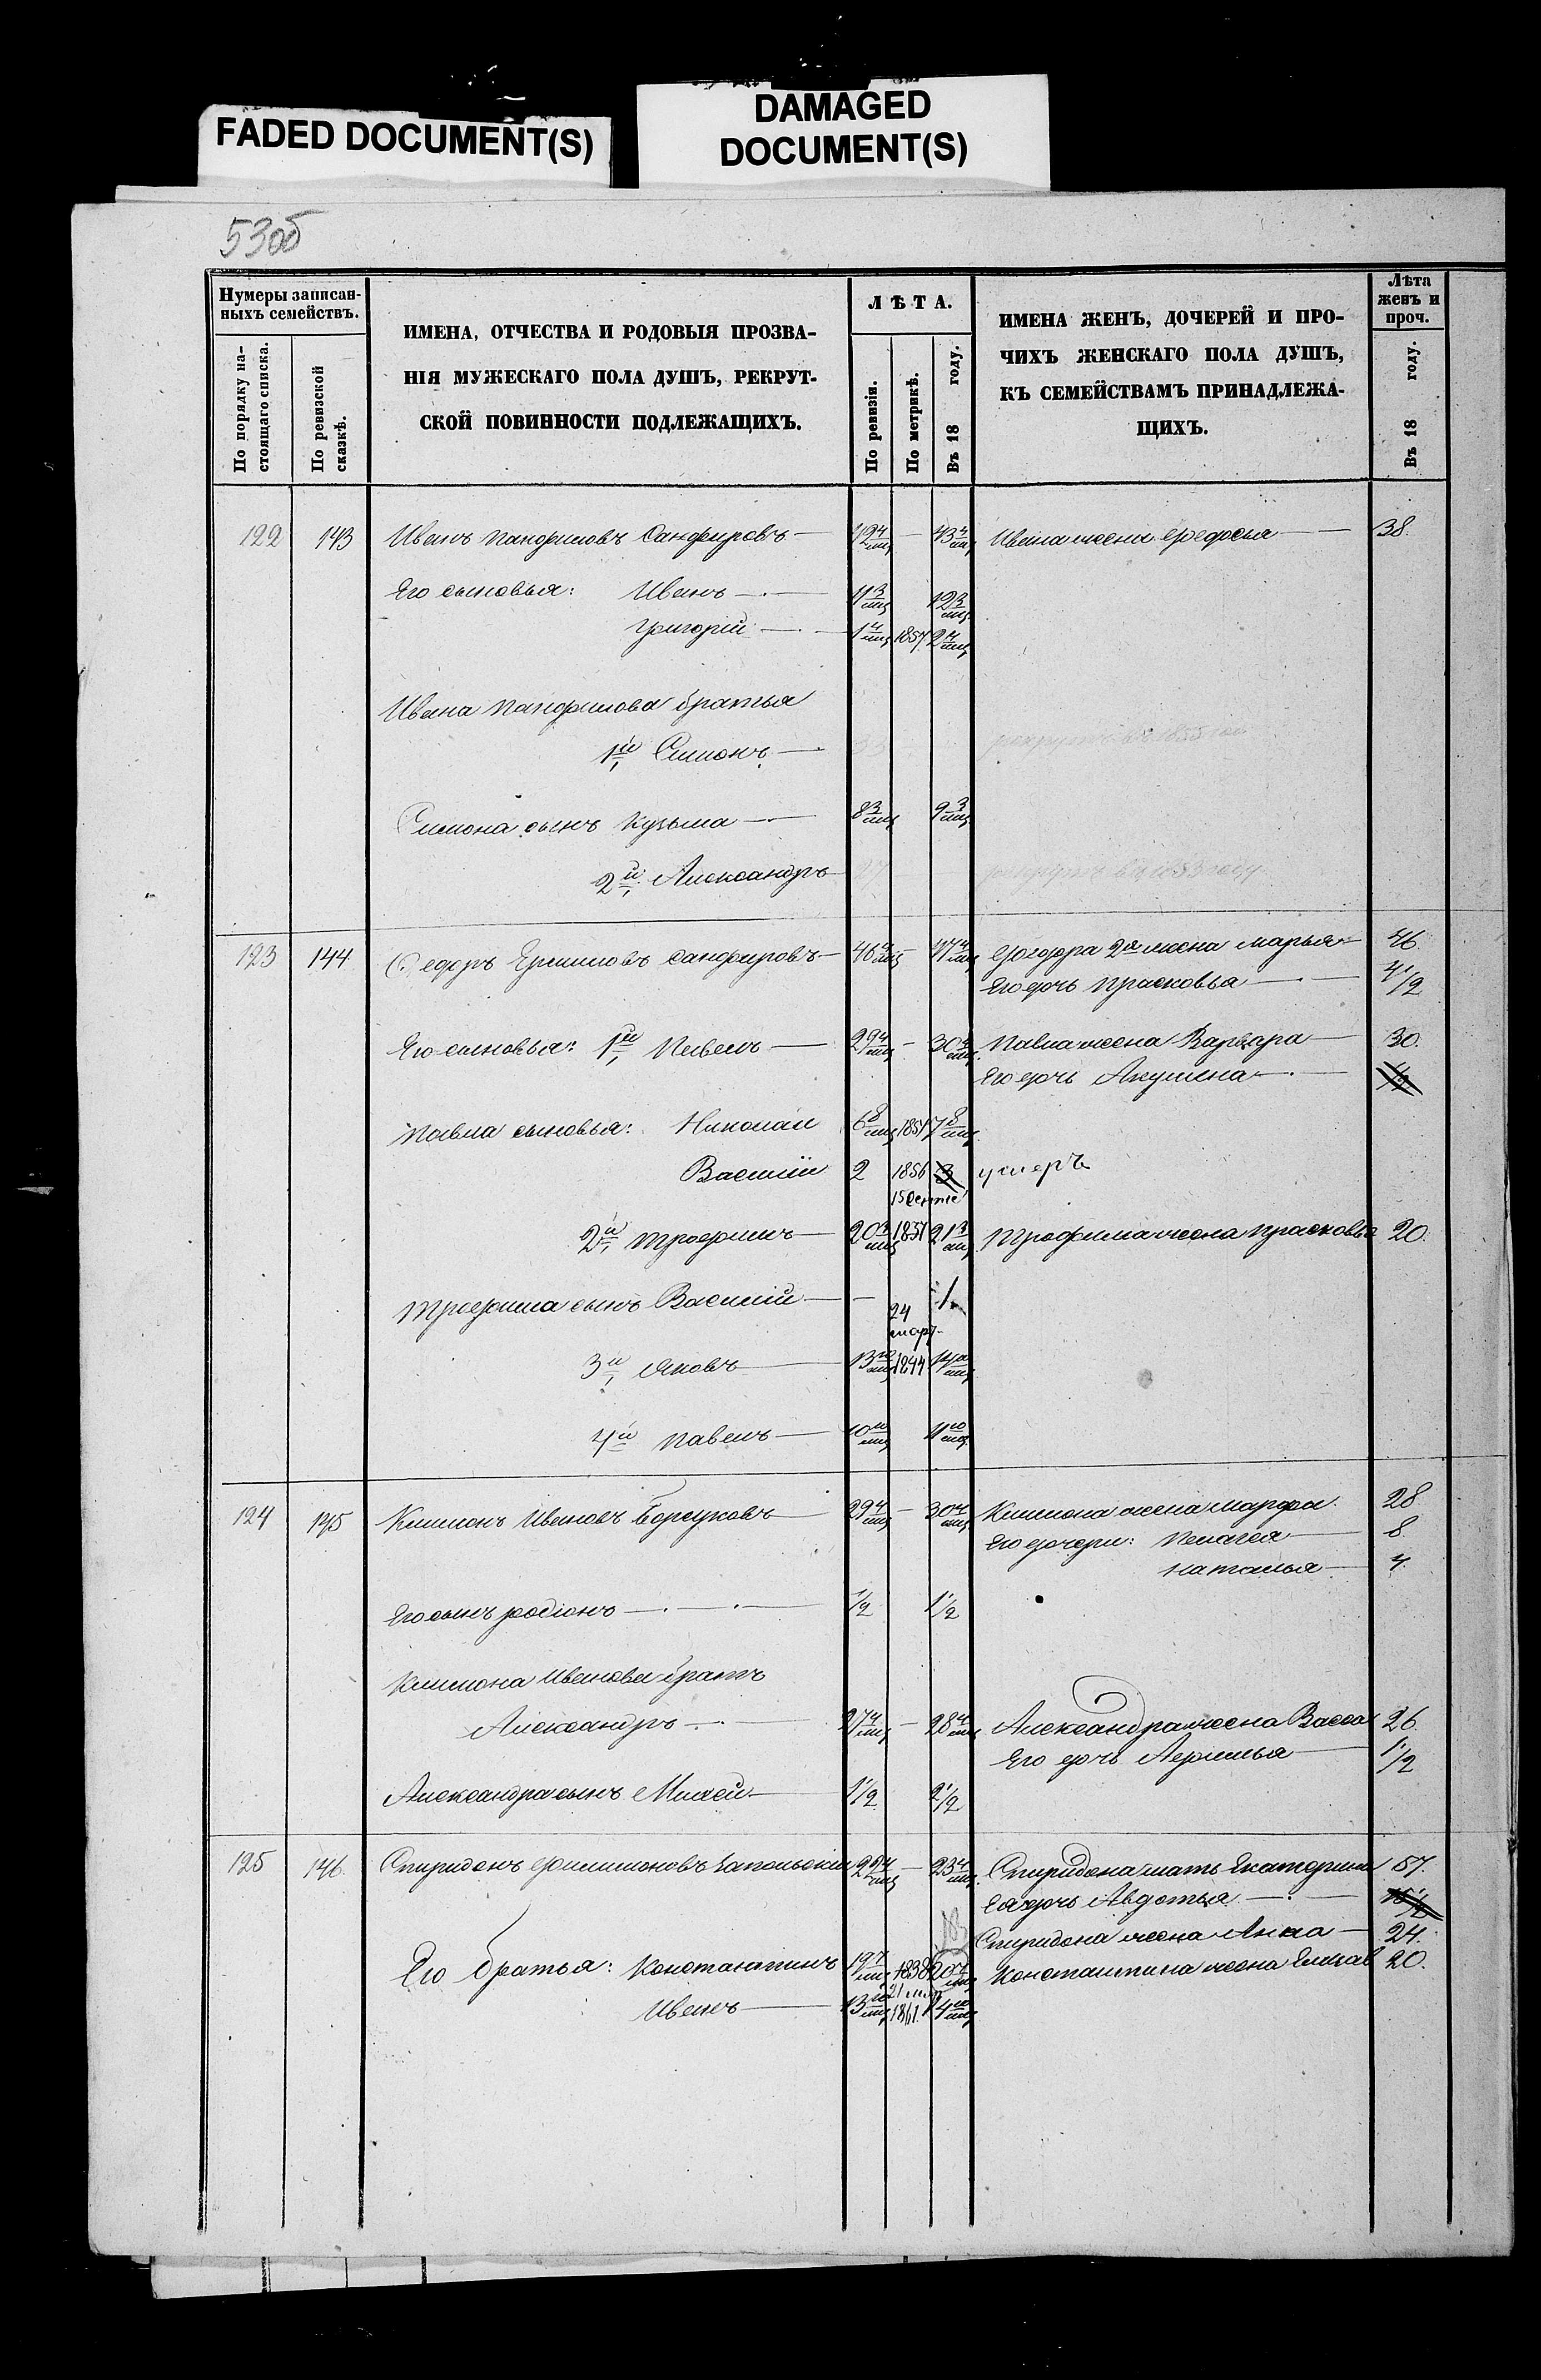 FADED DOCUMENT(S)
DAMAGED
DOCUMENT(S)
53об
Нумеры записан-
ныхъ семействъ.
По порядку на-
стоящаго списка.
По ревизской
сказкѣ.
ИМЕНА, ОТЧЕСТВА И РОДОВЫЯ ПРОЗВА-
НІЯ МУЖЕСКАГО ПОЛА ДУШЪ, РЕКРУТ-
СКОЙ ПОВИННОСТИ ПОДЛЕЖАЩИХЪ.
ЛѢТА.
По ревизіи.
По метрикѣ.
Въ 18 году.
ИМЕНА ЖЕНЪ, ДОЧЕРЕЙ И ПРО-
ЧИХЪ ЖЕНСКАГО ПОЛА ДУШЪ,
КЪ СЕМЕЙСТВАМЪ ПРИНАДЛЕЖА-
ЩИХЪ.
Лѣта
женъ и
проч.
Въ 18 году.
122 143 Иванъ Панфиловъ Санфировъ — 42 4/мц — 43 4/мц Ивана жена Федосья — 38.
Его сыновья: Иванъ — 11 3/мц 12 3/мц
Григорій — 1 4/мц 1857 2 4/мц
Ивана Панфилова братья
1й Симонъ — рекрутъ въ 1855 год
Симона сынъ Кузьма — 8 3/мц 9 3/мц
2й Александръ 27 рекрутъ въ 1853 году
123 144 Федоръ Ермиловъ Санфировъ — 46 4/мц — 47 4/мц Федора 2я жена Марья — 46.
Его дочь Прасковья — 4 1/2
Его сыновья: 1й Павелъ — 29 4/мц — 30 4/мц Павла жена Варвара — 30.
Его дочь Акулина —
Павла сыновья: Николай 6 8/мц 1851 7 8/мц
Василій 2 1856 3 умеръ
15 Сентяб
2й Трофимъ — 20 3/мц 1837 21 3/мц Трофима жена Прасковья 20.
Трофима сынъ Василій — — 1
24
март
3й Яковъ — 13 10/мц 1844 14 10/мц
4й Павелъ — 10 10/мц 11 10/мц
124 145 Климонъ Ивановъ Борсуковъ — 29 4/мц — 30 4/мц Климона жена Марфа. 28
Его дочери: Пелагея — 8.
Наталья — 4.
Его сынъ Родіонъ — 1/2 1 1/2
Климона Иванова братъ
Александръ — 27 4/мц — 28 4/мц Александра жена Васса 26.
Его дочь — 1 1/2
Александра сынъ Мисей — 1 1/2 2 1/2
125 146. Спиридонъ Филимоновъ Запольскій — 23 4/мц Спиридона мать Екатерина 57.
Ея дочь Авдотья —
Спиридона жена Анна — 24.
Его братья: Константинъ 19 7/мц 1838 20 7/мц Константина жена Елизав 20.
Иванъ — 13 10/мц 14 10/мц